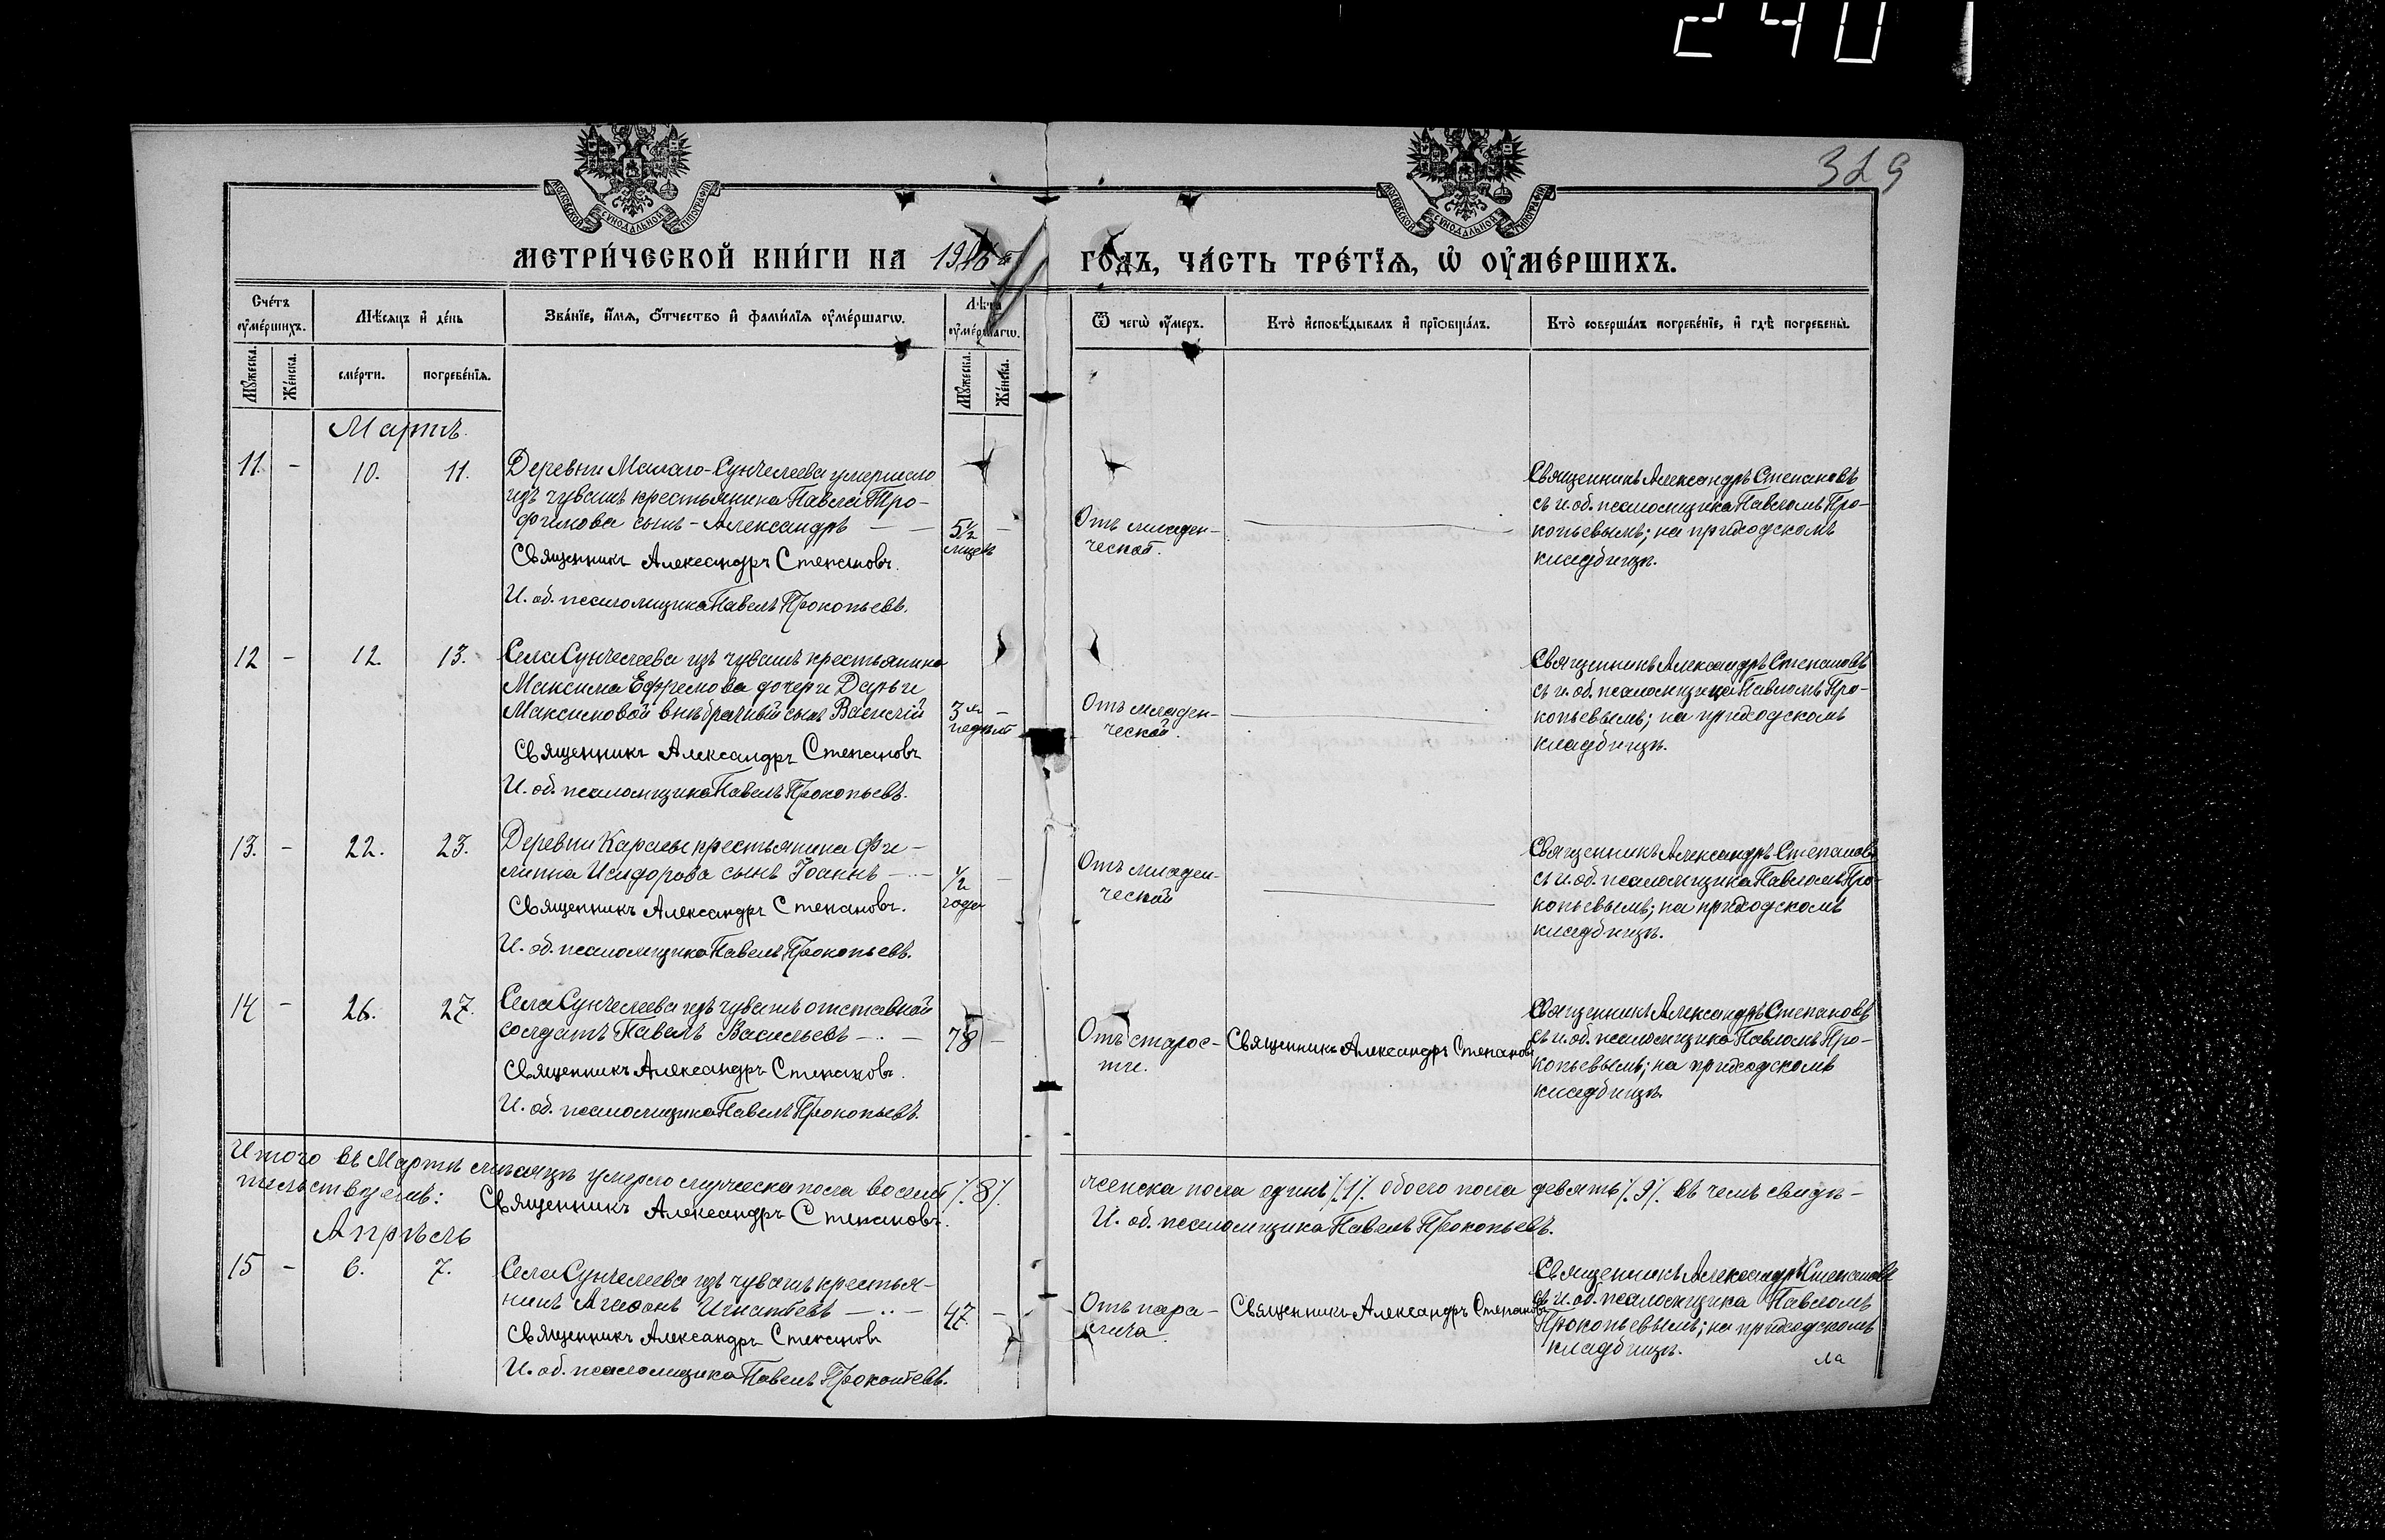 240
329
МОСКОВСКОЙ СѴНОДАЛЬНОЙ ТИПОГРАФІИ
МОСКОВСКОЙ СѴНОДАЛЬНОЙ ТИПОГРАФІИ
МЕТРИ́ЧЕСКОЙ КНИ́ГИ НА ГО́ДЪ, ЧА́СТЬ ТРЕ́ТЇѦ, Ѡ҆ ОУ҆МЕ́РШИХЪ.
Сче́тъ оу҆ме́ршихъ.
Мѣ́сѧцъ и҆ де́нь
Зва́нїе, и҆́мѧ, ѻ҆́тчество и҆ фами́лїѧ оу҆ме́ршагѡ.
Лѣ́та оу҆ме́ршагѡ.
Ѿ чегѡ̀ оу҆́меръ.
Кто̀ и҆сповѣ́дывалъ и҆ прїѡбща́лъ.
Кто̀ соверша́лъ погребе́нїе, и҆ гдѣ̀ погребены̀.
Мꙋ́жеска.
Же́нска.
сме́рти.
погребе́нїѧ.
Мꙋ́жеска.
Же́нска.
Мартъ.
11. - 10. 11. Деревни Малаго-Сунчелеева умершаго
изъ чувашъ крестьянина Павла Тро-
фимова сынъ - Александръ - -
5½ мѣсяц. -
Священникъ Александръ Степановъ.
И. об. псаломщика Павелъ Прокопьевъ.
Отъ младен-
ческой.
Священникъ Александръ Степановъ
съ и. об. псаломщика Павломъ Про-
копьевымъ; на приходскомъ
кладбищѣ.
12 - 12. 13. Села Сунчелеева изъ чувашъ крестьянина
Максима Ефремова дочери Дарьи
Максимовой внѣбрачный сынъ Василій
3хъ недѣль -
Священникъ Александръ Степановъ
И. об. псаломщика Павелъ Прокопьевъ.
Отъ младен-
ческой.
Священникъ Александръ Степановъ
съ и. об. псаломщика Павломъ Про-
копьевымъ; на приходскомъ
кладбищѣ.
13. - 22. 23. Деревни Карасы крестьянина Фи-
липпа Исидорова сынъ Іоаннъ - -
½ года -
Священникъ Александръ Степановъ.
И. об. псаломщика Павелъ Прокопьевъ.
Отъ младен-
ческой
Священникъ Александръ Степановъ
съ и. об. псаломщика Павломъ Про-
копьевымъ; на приходскомъ
кладбищѣ.
14 - 26. 27. Села Сунчелеева изъ чувашъ отставной
солдатъ Павелъ Васильевъ - . -
78 -
Священникъ Александръ Степановъ.
И. об. псаломщика Павелъ Прокопьевъ.
Отъ старос-
ти.
Священникъ Александръ Степановъ
Священникъ Александръ Степановъ
съ и. об. псаломщика Павломъ Про-
копьевымъ; на приходскомъ
кладбищѣ.
Итого въ Мартѣ мѣсяцѣ умерло мужеска пола восемь /.8/. женска пола одинъ /.1/. обоего пола девять /.9/. въ чемъ свидѣ-
тельствуемъ: Священникъ Александръ Степановъ. И. об. псаломщика Павелъ Прокопьевъ.
Апрѣль
15 - 6. 7. Села Сунчелеева изъ чувашъ крестья-
нинъ Агаѳонъ Игнатьевъ - .. -
47 -
Священникъ Александръ Степановъ
И. об. псаломщика Павелъ Прокопьевъ.
Отъ пара-
лича.
Священникъ Александръ Степановъ
Священникъ Александръ Степановъ
съ и. об. псаломщика Павломъ
Прокопьевымъ; на приходскомъ
кладбищѣ.